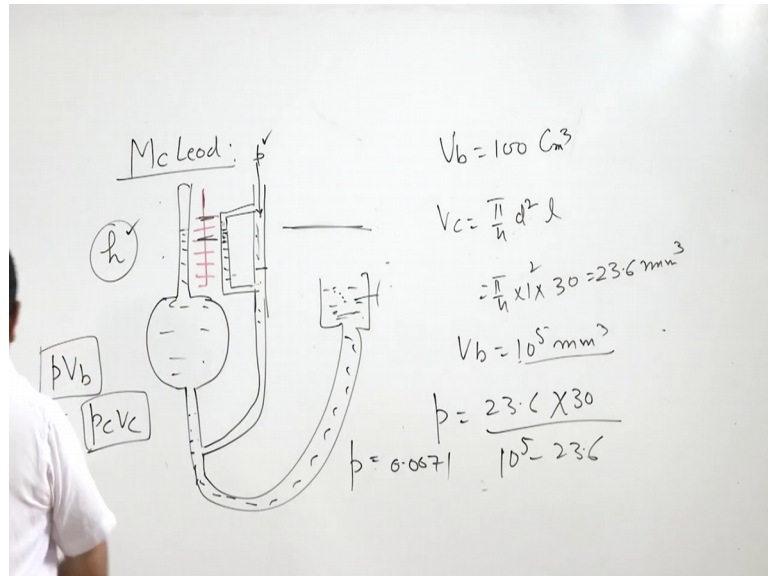 McLeod:
p
h
pVb
pcVc
Vb = 100 Cm³
Vc = π/4 d² l
= π/4 × 1² × 30 = 23.6 mm³
Vb = 10⁵ mm³
p = 23.6 × 30 / 10⁵ - 23.6
p = 0.0071